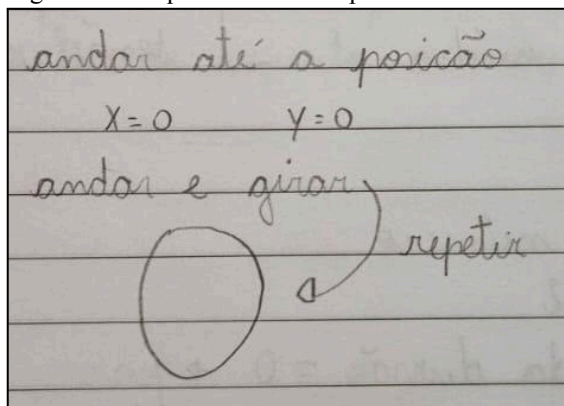 andar até a posicão
X=0 Y=0
andar e girar
repetir